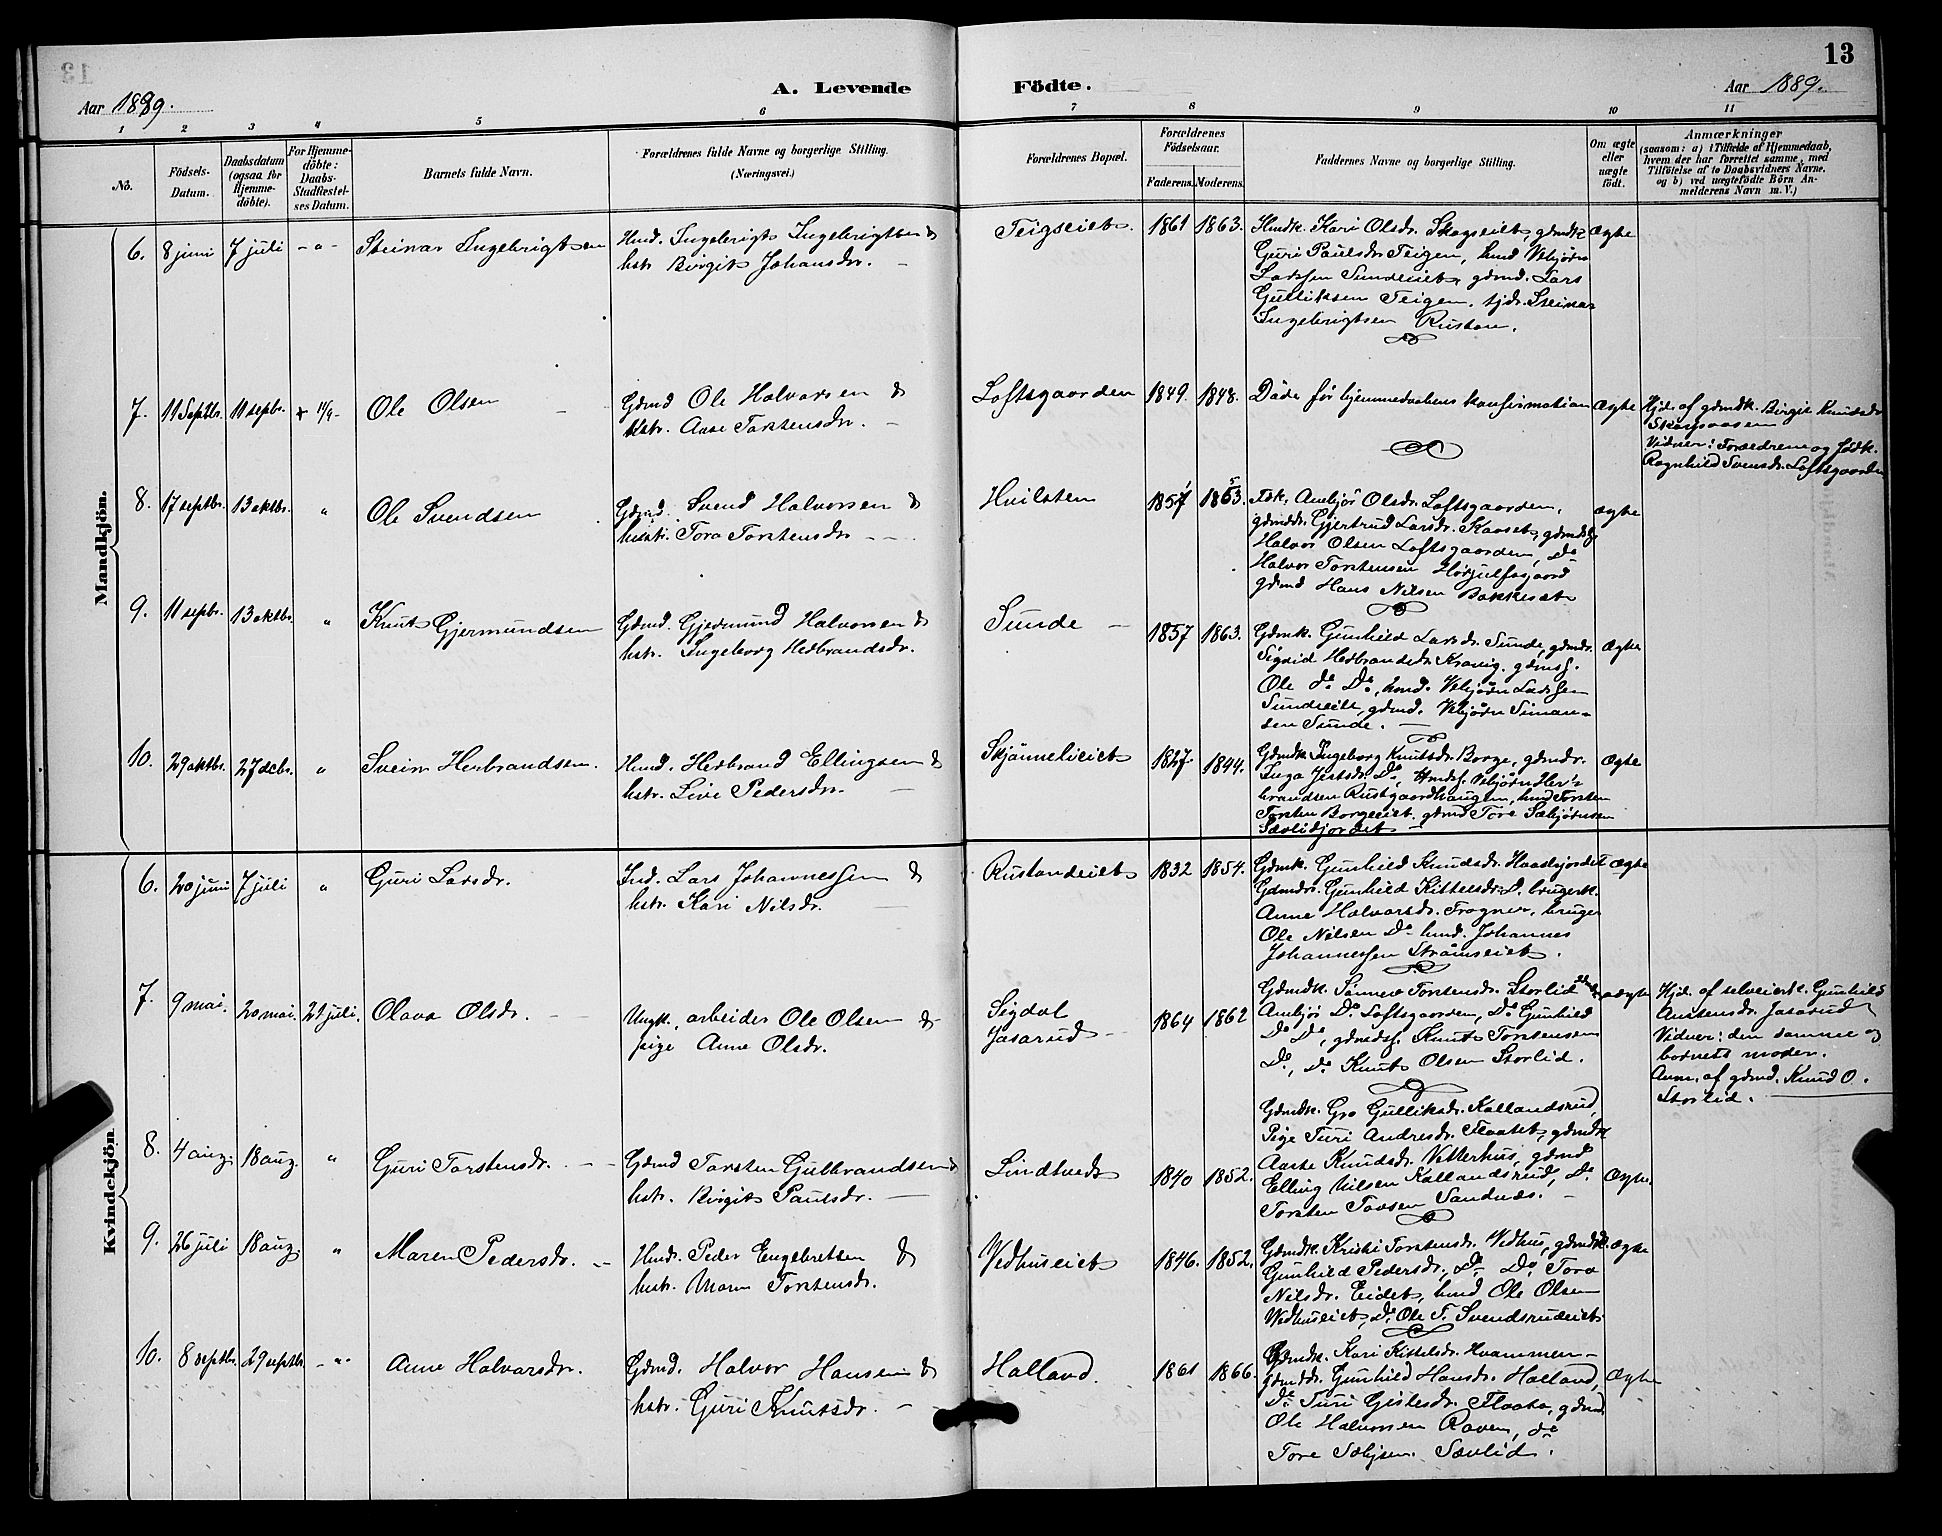 13
Aar 1889.
A. Levende Födte.
Aar 1889.
1 2 3 4 5 6 7 8 9 10 11
No.
Födsels-Datum.
Daabsdatum (ogsaa for Hjemme-döbte).
For Hjemme-döbte: Daabs-Stadfæstel-ses Datum.
Barnets fulde Navn.
Forældrenes fulde Navne og borgerlige Stilling.
(Næringsvei.)
Forældrenes Bopæl.
Forældrenes Födselsaar.
Faderens. Moderens.
Faddernes Navne og borgerlige Stilling.
Om ægte eller uægte födt.
Anmærkninger
(saasom: a) i Tilfælde af Hjemmedaab, hvem der har forrettet samme, med Tilföielse af to Daabsvidners Navne, og b) ved uægtefödte Börn Anmelderens Navn m. V.)
Mandkjön.
6. 8 juni 7 juli - " - Steinar Ingebrigtsen
Hmd. Ingebrigt Ingebrigtsen &
hstr. Birgit Johansdr. -
Teigseiet 1861 1863.
Hmdk. Kari Olsdr. Skogseiet, gdmdk
Guri Paulsdr. Teigen, hmd Vebjørn
Larssen Sundeiet, gdmd. Lars
Gulliksen Teigen, tjdr. Steinar
Ingebrigtsen Rustan.
Ægte
7. 11 Septbr. 11 sepbr. + 11/9- Ole Olsen -
Gdmd Ole Halvorsen &
hstr. Aase Torstensdr. -
Loftsgaarden 1849. 1848.
Døde før hjemmedaabens konfirmation
Ægte
Hjd. af gdmdk. Birgit Knudsdr
Vidner: Forældrene og fødk.
Ragnhild Svensdr. Loftsgaarden
8. 17 septbr. 13 oktbr. " Ole Svendsen
Gdmd. Svend Halvorsen &
hustr. Tora Torstensdr. - -
Hvilsten 1857 1863.
Fdk. Ambjør Olsdr. Loftsgaarden,
gdmddr. Gjertrud Larsdr. Kaaset, gdmds
Halvor Olsen Loftsgaarden, Do
Halvor Torstensen Hørjulfsgaard
gdmd Hans Nilsen Bakkeset
Ægte
9. 11 sepbr. 13 oktbr. " Knut Gjermundsen
Gdmd. Gjermund Halvorsen &
hstr. Ingeborg Herbrandsdr.
Sunde - 1857 1863.
Gdmk. Gunhild Larsdr. Sunde, gdmdr.
Sigrid Herbrandsdr. Kravig, gdms.
Ole do Do, hmd. Vebjørn Larssen
Sundeeiet, gdmd. Vebjørn Siman-
sen Sunde. -
Ægte
10. 29 oktbr. 27 dcbr. " Svein Herbrandsen.
Hmd. Herbrand Ellingsen &
hstr. Live Pedersdr. -
Skjønneleiet 1827. 1844.
Gdmdk Ingeborg Knutsdr. Borge, gdmdr.
Inga Do, Hmds. Vebjørn Her-
brandsen Rustgaardhaugen, hmd Torsten
Torsten Borgeeiet, gdmd Tore Sæbjørnsen
Sævlidjordet -
Ægte
Kvindekjön
6. 20 juni 7 juli " Guri Larsdr.
Ind. Lars Johannessen &
hstr. Kari Nilsdr. -
Rustandeiet 1832 1854.
Gdmk. Gunhild Knudsdr. Haaskjordet
Gdmdr. Gunhild Kittelsdr. Do, brugerk.
Anne Halvorsdr. Frogner, bruger
Ole Nilsen Do hmd. Johannes
Johannessen Strømseiet.
Ægte
7. 9 mai. 20 mai. 21 juli. Olava Olsdr. -
Ungk., arbeider Ole Olsen &
pige Anne Olsdr.
Sigdal
Jasarud - 1864 1862
Gdmdk. Sønnev Torstensdr. Storlid
Ambjør Do Loftsgaarden, Do Gunhild
Do Do, gdmds. Knut Torstensen
Do, Do Knut Olsen Storlid.
uægte
Hjd. af selveierk. Gunhild
Amtensdr. Jasarud
Vidner: den samme og
barnets moder.
Anm. af gdmd. Knud O.
Storlid.
8. 4 aug. 18 aug. " Guri Torstensdr. - -
Gdmd Torsten Gulbrandsen &
hstr. Birgit Paulsdr. -
Lindtvedt 1840 1852.
Gdmdk. Gro Gulliksdr. Kallandsrud,
Pige Turi Andresdr. Flaatet, gdmdk
Aaste Knudsdr. Vetterhus, gdmd
Elling Nilsen Kallandsrud, Do
Torsten Tovsen Sandnæs. -
Ægte.
9. 26 juli 18 aug " Maren Pedersdr. -
Hmd. Peder Engebretsen &
hstr. Maren Torstensdr.
Vedhuseiet 1846. 1852.
Gdmdk. Kristi Torstensdr. Vedhus, gdmdk.
Gunhild Pedersdr., Do Do, Tora
Nilsdr. Eidet, hmd Ole Olsen
Vedhuseiet, Do Ole T. Svendsrudeiet
Ægte
10. 8 septbr. 29 septbr. - " - Anne Halvorsdr.
Gdmd. Halvor Hansen &
hstr. Guri Knutsdr. -
Halland. 1861 1866.
Gdmdk. Kari Kittelsdr. Hvammen -
gdmddr. Gunhild Hansdr. Halland,
Do Turi Gislesdr. Flaata, gdmd
Ole Halvorsen Raven, do
Tore Sæbjsen. Sævlid.
Ægte